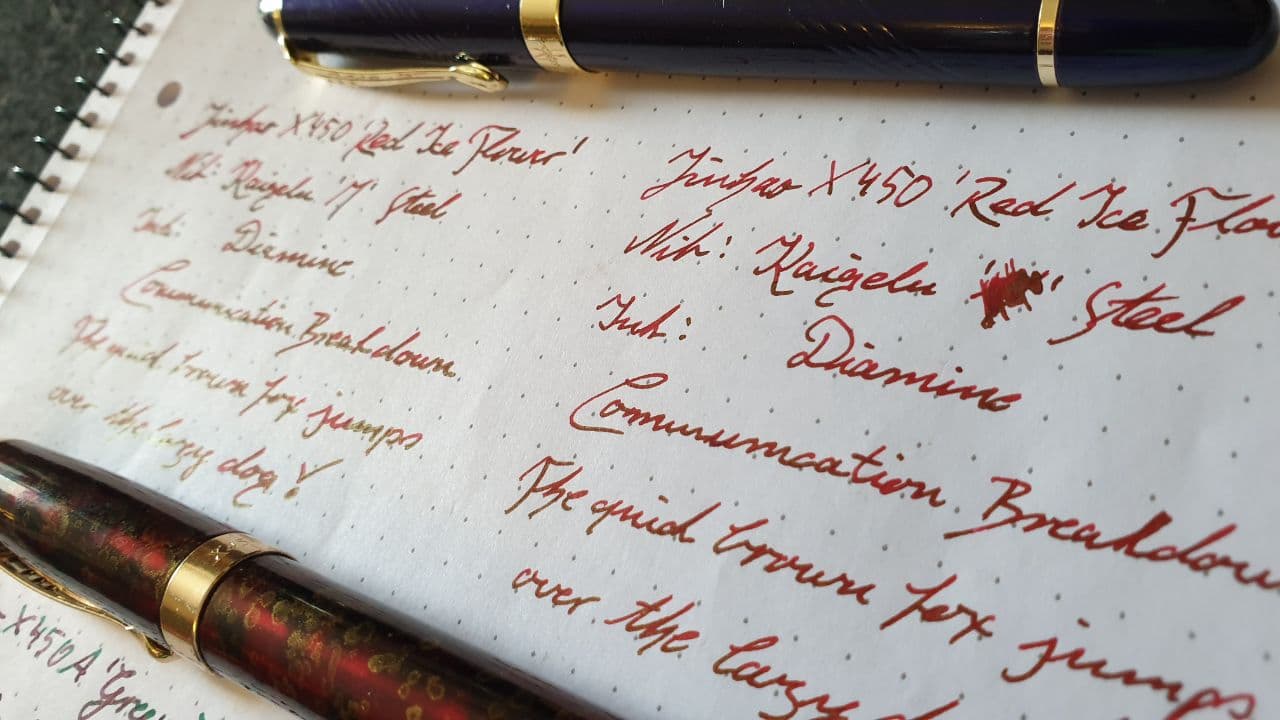 Jinhao X450 'Red Ice Flower'
Nib: Kaigelu 'M' Steel
Ink: Diamine
Communication Breakdown.
The quid brown fox jumps
over the lazy dog!
Jinhao X450 'Red Ice Flo
Nib: Kaigelu ' ' Steel
Ink: Diamine
Communication Breakdow
The quid brown fox jumps
over the lazy
X450A 'Gree